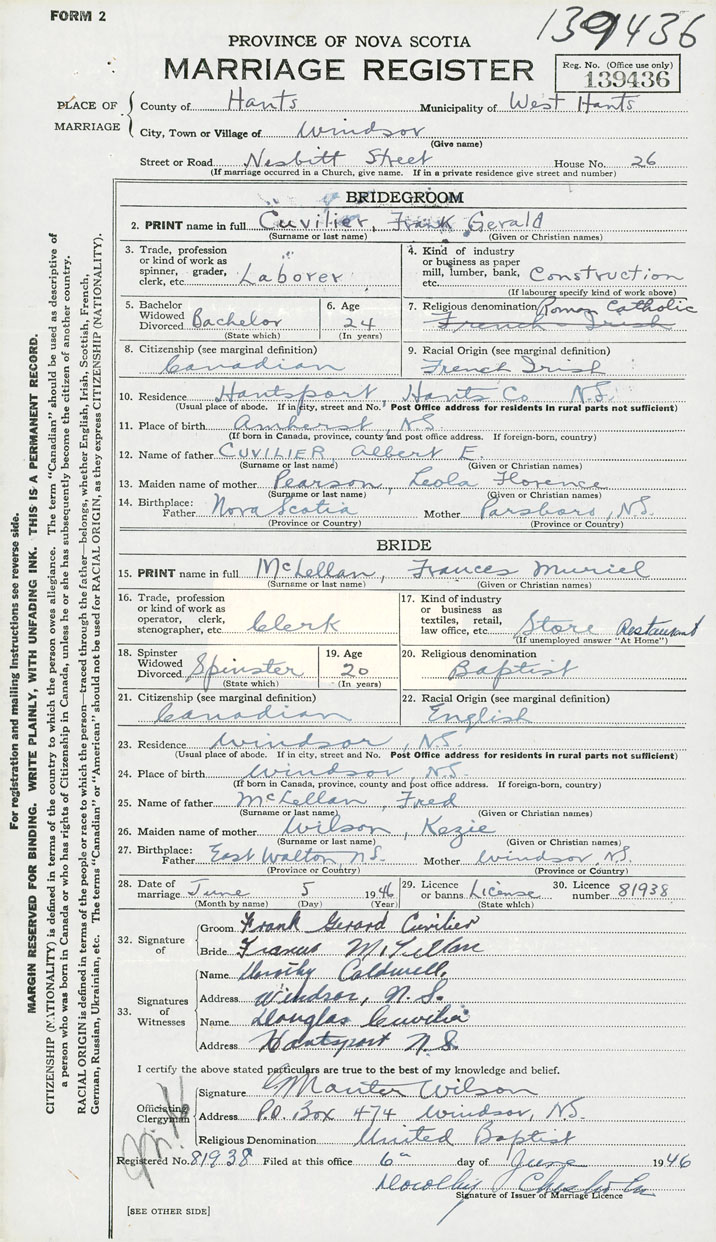 FORM 2
139436
PROVINCE OF NOVA SCOTIA
MARRIAGE REGISTER
Reg. No. (Office use only)
139436
PLACE OF MARRIAGE
County of Hants Municipality of West Hants
City, Town or Village of Windsor
(Give name)
Street or Road Nesbitt Street House No. 26
(If marriage occurred in a Church, give name. If in a private residence give street and number)
BRIDEGROOM
2. PRINT name in full Cuvilier, Frank Gerald
(Surname or last name) (Given or Christian names)
3. Trade, profession or kind of work as spinner, grader, clerk, etc. Laborer
4. Kind of industry or business as paper mill, lumber, bank, etc. Construction
(If labourer specify kind of work above)
5. Bachelor Widowed Divorced Bachelor
(State which)
6. Age 24
(In years)
7. Religious denomination Roman Catholic
French Irish
8. Citizenship (see marginal definition)
Canadian
9. Racial Origin (see marginal definition)
French Irish
10. Residence Hantsport, Hants Co. N.S.
(Usual place of abode. If in city, street and No. Post Office address for residents in rural parts not sufficient)
11. Place of birth Amherst, N.S.
(If born in Canada, province, county and post office address. If foreign-born, country)
12. Name of father CUVILIER, Albert E.
(Surname or last name) (Given or Christian names)
13. Maiden name of mother Pearson, Leola Florence
(Surname or last name) (Given or Christian names)
14. Birthplace: Father Nova Scotia Mother Parsboro, N.S.
(Province or Country) (Province or Country)
BRIDE
15. PRINT name in full McLellan, Frances Muriel
(Surname or last name) (Given or Christian names)
16. Trade, profession or kind of work as operator, clerk, stenographer, etc. Clerk
17. Kind of industry or business as textiles, retail, law office, etc. Store Restaurant
(If unemployed answer "At Home")
18. Spinster Widowed Divorced Spinster
(State which)
19. Age 20
(In years)
20. Religious denomination
Baptist
21. Citizenship (see marginal definition)
Canadian
22. Racial Origin (see marginal definition)
English
23. Residence Windsor, N.S.
(Usual place of abode. If in city, street and No. Post Office address for residents in rural parts not sufficient)
24. Place of birth Windsor, N.S.
(If born in Canada, province, county and post office address. If foreign-born, country)
25. Name of father McLellan, Fred
(Surname or last name) (Given or Christian names)
26. Maiden name of mother Wilson, Kezie
(Surname or last name) (Given or Christian names)
27. Birthplace: Father East Walton, N.S. Mother Windsor, N.S.
(Province or Country) (Province or Country)
28. Date of marriage June 5 1946
(Month by name) (Day) (Year)
29. Licence or banns License
(State which)
30. Licence number 81938
32. Signature of
Groom Frank Gerard Cuvilier
Bride Frances McLellan
33. Signatures of Witnesses
Name Dorothy Caldwell
Address Windsor, N.S.
Name Douglas Cuvilier
Address Hantsport N.S.
I certify the above stated particulars are true to the best of my knowledge and belief.
Officiating Clergyman
Signature Manter Wilson
Address P.O. Box 474 Windsor, N.S.
Religious Denomination United Baptist
Registered No. 81938 Filed at this office 6th day of June 1946
Dorothy
Signature of Issuer of Marriage Licence
[SEE OTHER SIDE]
For registration and mailing instructions see reverse side.
MARGIN RESERVED FOR BINDING. WRITE PLAINLY, WITH UNFADING INK. THIS IS A PERMANENT RECORD.
CITIZENSHIP (NATIONALITY) is defined in terms of the country to which the person owes allegiance. The term "Canadian" should be used as descriptive of
a person who was born in Canada or who has rights of Citizenship in Canada, unless he or she has subsequently become the citizen of another country.
RACIAL ORIGIN is defined in terms of the people or race to which the person—traced through the father—belongs, whether English, Irish, Scottish, French,
German, Russian, Ukrainian, etc. The terms "Canadian" or "American" should not be used for RACIAL ORIGIN, as they express CITIZENSHIP (NATIONALITY).